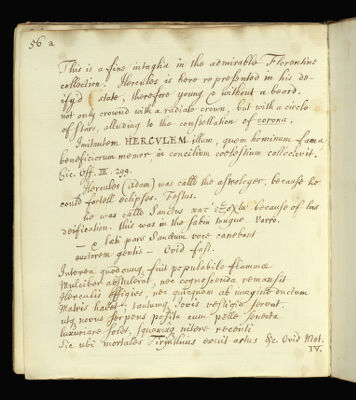 56 a
This is a fine intaglia in the admirable Florentine
collection. Hercules is here repressented in his de-
ify'd state, therefore young & without a beard.
not only crownd with a radiate crown, but with a circle
of stars, alluding to the constellation of corona.
Imitantem HERCVLEM illum, quem hominum fama
beneficiorum memor in concilium coelestium collocavit.
Cic. Off. III. 299.
Hercules (idem) was calld the astrologer, because he
could fortell eclipses. Festus.
he was calld Sanctus κατ' because of his
deification. this was in the sabin tongue Varro.
— & lati pars Sanctum voce canebat
auctorem gentis — Ovid fast.
Interea quodcunq fuit populabile flammæ
Mulciber abstulerat, nec cognoscenda remansit
Herculis effigies, nec quicquam ab imagine ductum
Matris habet; tantumq Jovis vestigia servat.
utq novus serpens posita cum pelle senecta
luxuriare solet, squamaq nitere recenti
Sic ubi mortales Tirynthius exuit artus &c. Ovid Met.
IV.